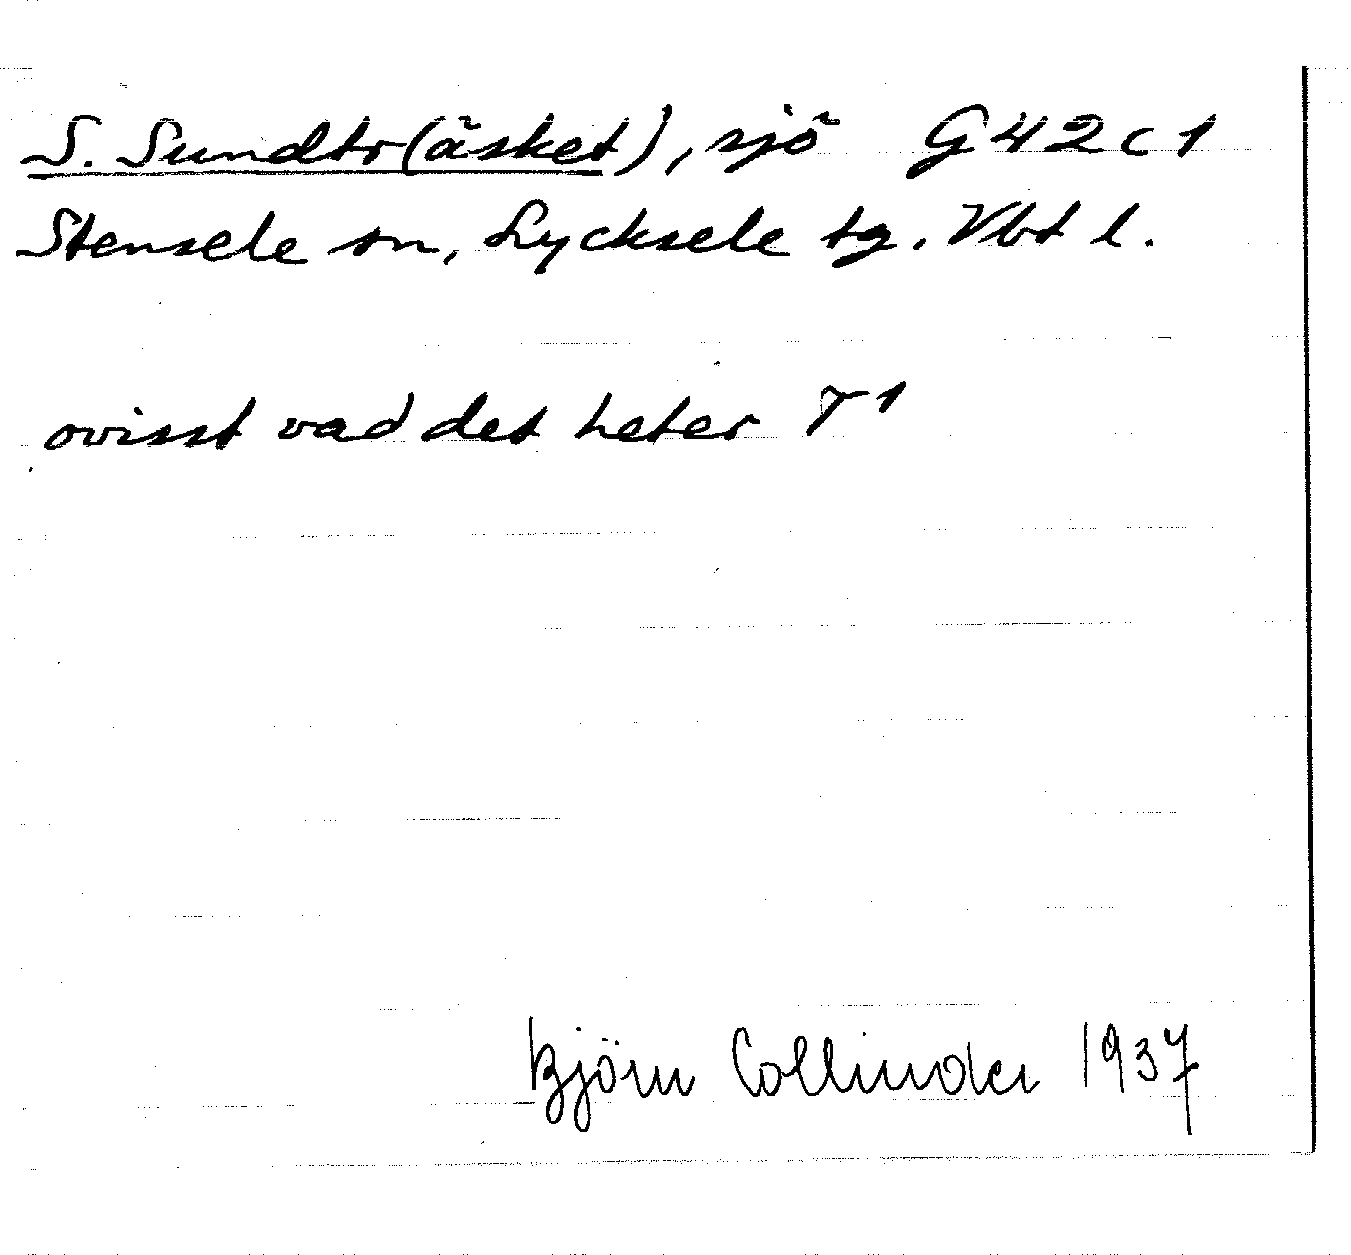 S. Sundtr(äsket), sjö G 42 c 1
Stensele sn, Lycksele tg. Vbt l.
ovisst vad det heter
Björn Collinder 1937